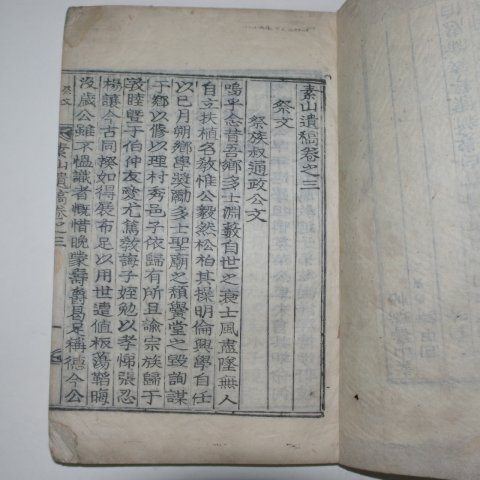 素山遺稿卷之三
祭文
祭族叔通政公文
嗚乎念昔吾鄕多士淵藪自世之衰士風盡墜無人
自立扶植名敎惟公毅然松柏其操明倫興學自任
以己月朔鄕學奬勵多士聖廟之頹黌堂之毁詢謀
于鄕以修以理村秀邑子依歸有所且諭宗族歸于
敦睦曁于伯仲友愛尤篤敎誨子姪勉以孝悌張忍
楊讓今古同揆如得展布足以用世遭値板蕩韜晦
沒歲公雖不慍識者慨惜晩蒙壽爵曷足稱德今公
祭文
素山遺稿卷之三
一